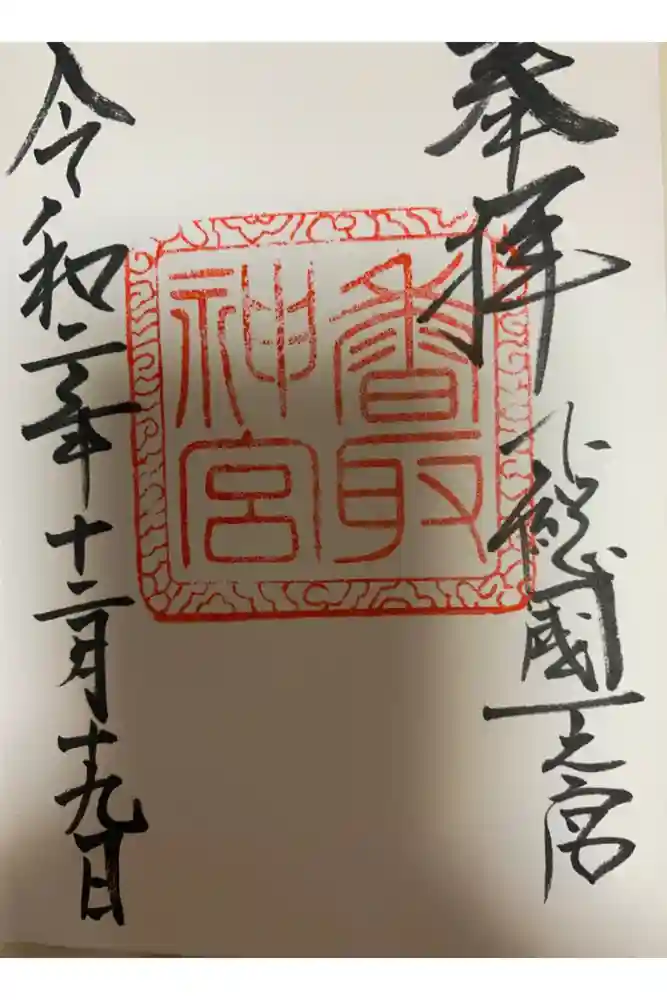 奉拝
下総國一之宮
香取
神宮
令和三年十二月十九日